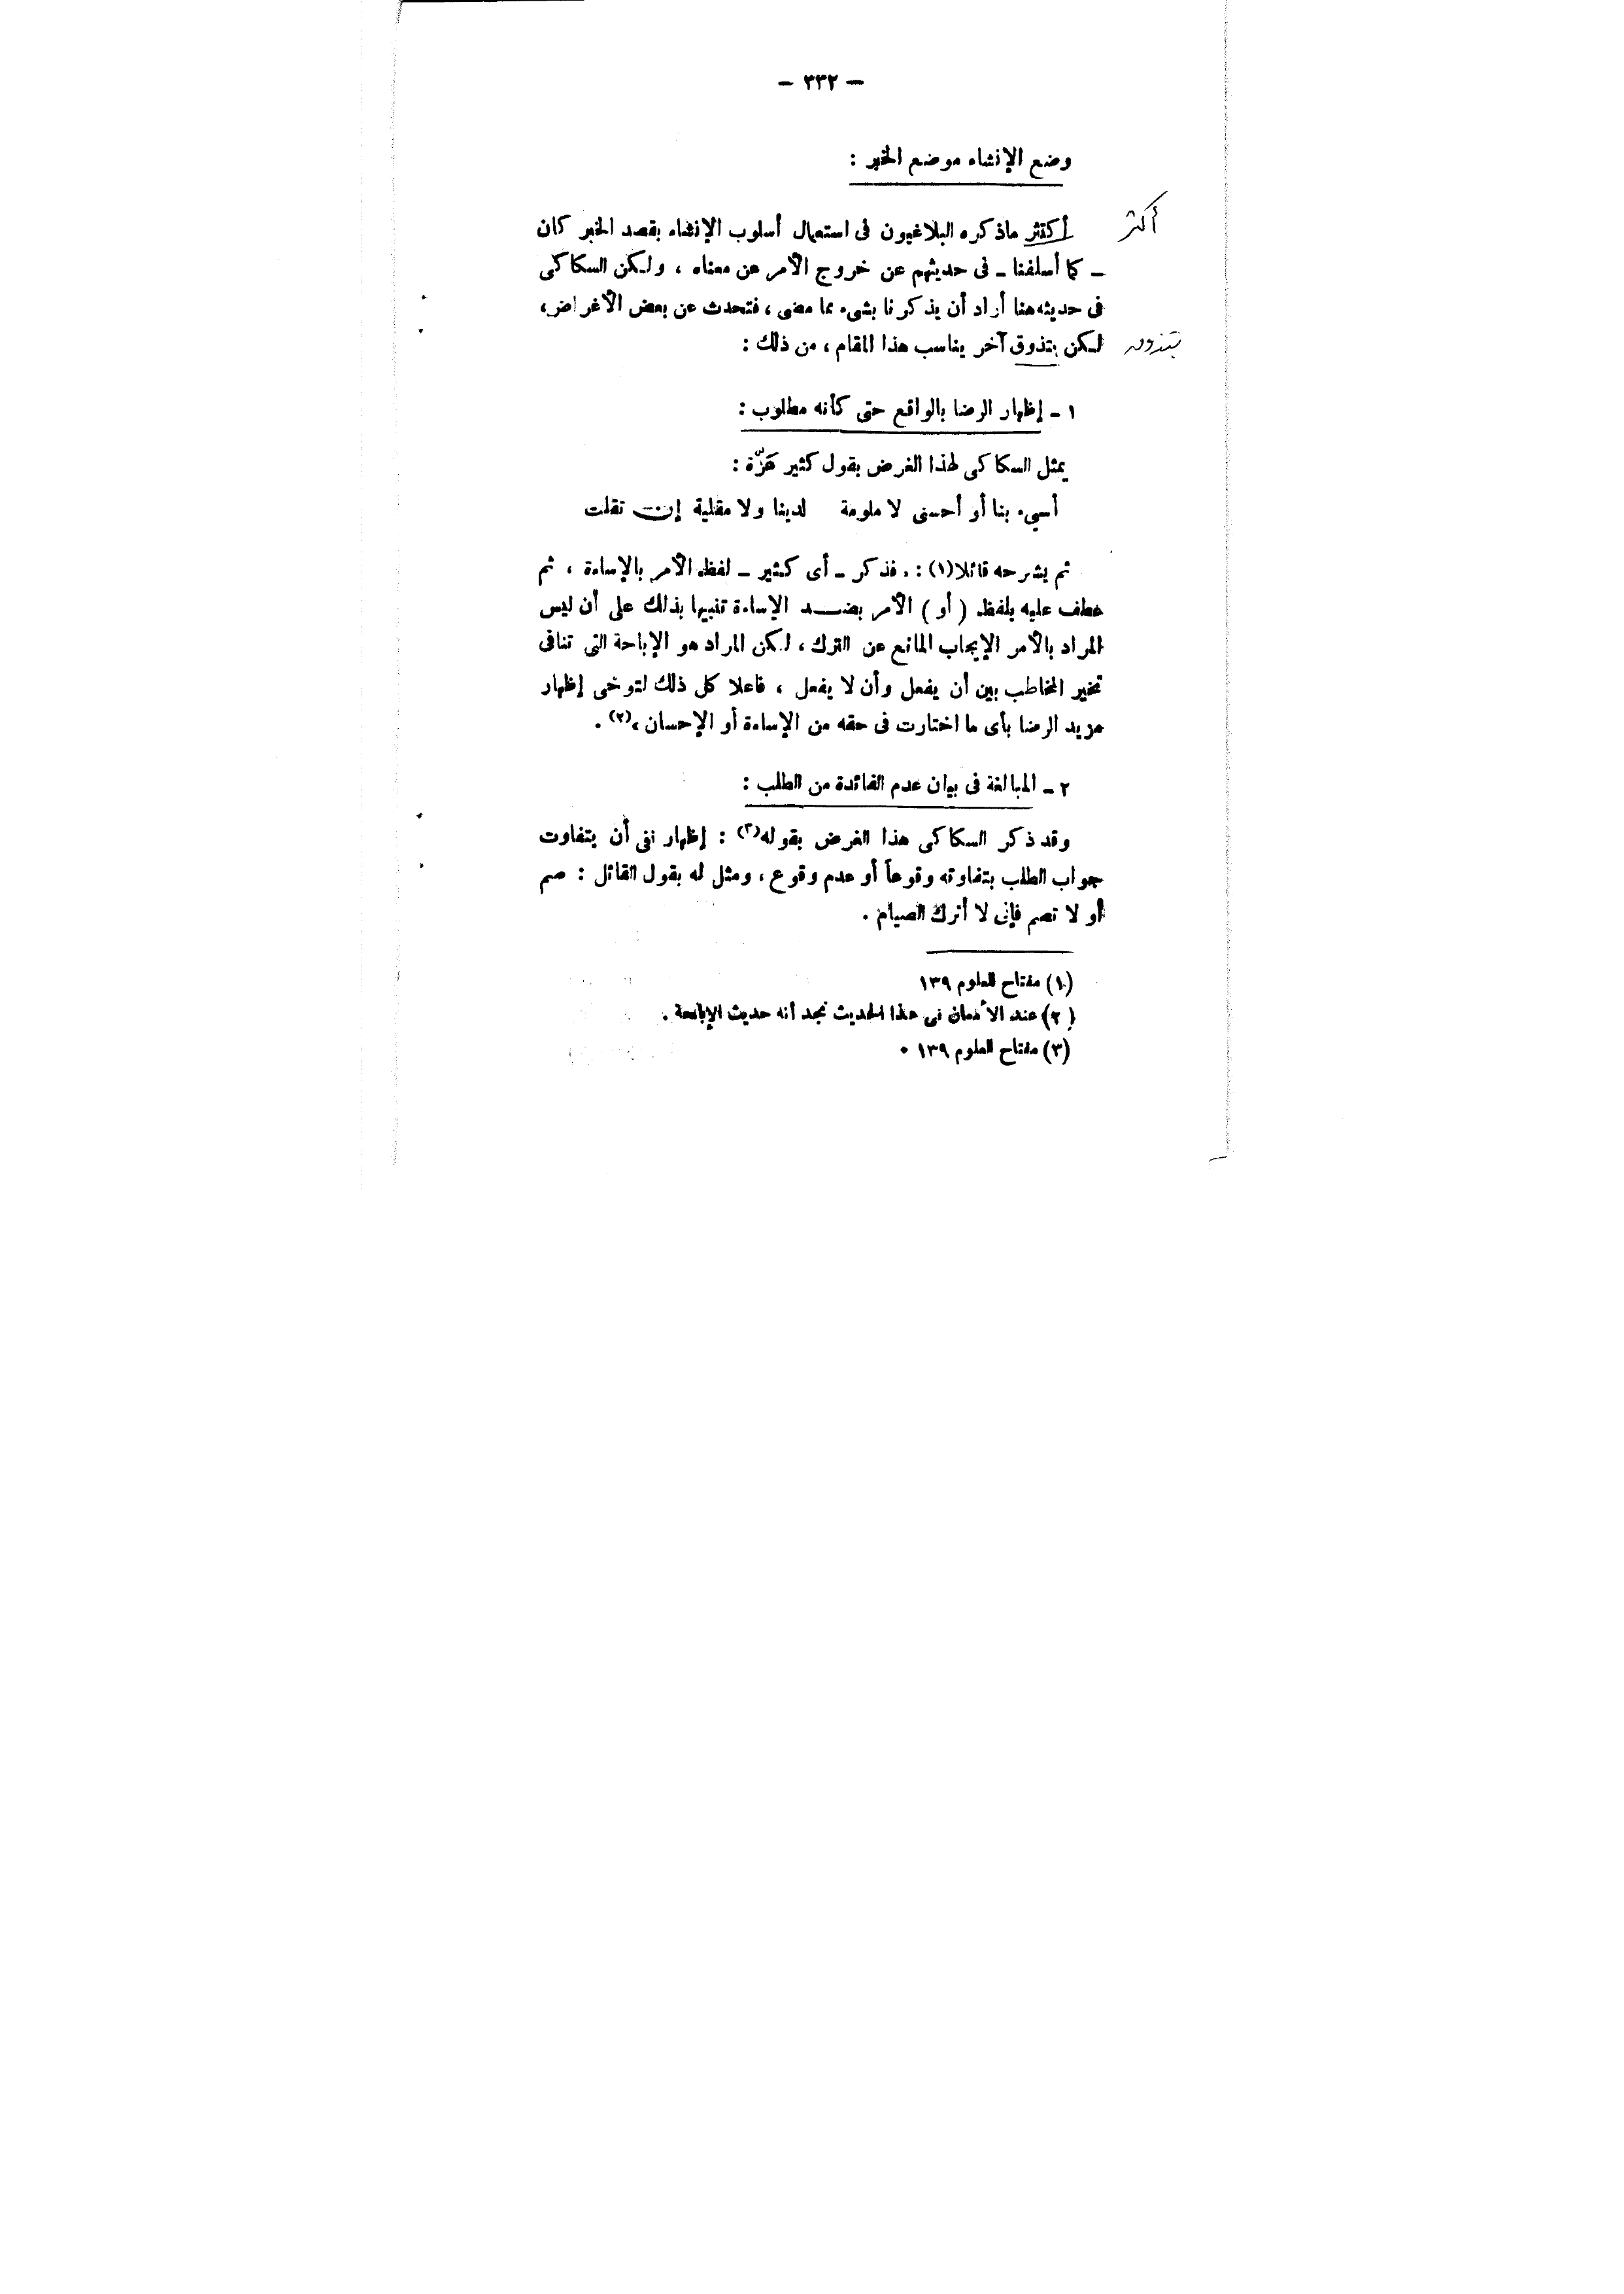 — ٣٣٢ —
وضع الإنشاء موضع الخبر :
أكثر
أكتثر ماذكره البلاغيون فى استعمال أسلوب الإنشاء بقصد الخبر كان
ـ كما أسلفنا ـ فى حديثهم عن خروج الأمر عن معناه ، ولكن السكاكى
فى حديثه هنا أراد أن يذكرنا بشىء مما مضى ، فتحدث عن بعض الأغراض،
لكن بتذوق آخر يناسب هذا المقام ، من ذلك :
بتذوق
١ ـ إظهار الرضا بالواقع حتى كأنه مطلوب :
يمثل السكاكى لهذا الغرض بقول كثير عَزّة :
أسيء بنا أو أحسنى لا ملومة لدينا ولا مقلية إن تقلت
ثم يشرحه قائلا(١) : . فذكر ـ أى كثير ـ لفظ الأمر بالإساءة ، ثم
عطف عليه بلفظ ( أو ) الأمر بضد الإساءة تنبيها بذلك على أن ليس
المراد بالأمر الإيجاب المانع عن الترك ، لكن المراد هو الإباحة التى تنافى
تخير المخاطب بين أن يفعل وأن لا يفعل ، فاعلا كل ذلك لتوخى إظهار
مزيد الرضا بأى ما اختارت فى حقه من الإساءة أو الإحسان ،(٢) .
٢ ـ المبالغة فى بيان عدم الفائدة من الطلب :
وقد ذكر السكاكى هذا الغرض بقوله(٣) : إظهار نفى أن يتفاوت
جواب الطلب بتفاوته وقوعاً أو عدم وقوع ، ومثل له بقول القائل : صم
أو لا تصم فإنى لا أترك الصيام .
(١) مفتاح العلوم ١٣٩
(٢) عند الأمعان فى هذا الحديث نجد أنه حديث الإباحة .
(٣) مفتاح العلوم ١٣٩ .